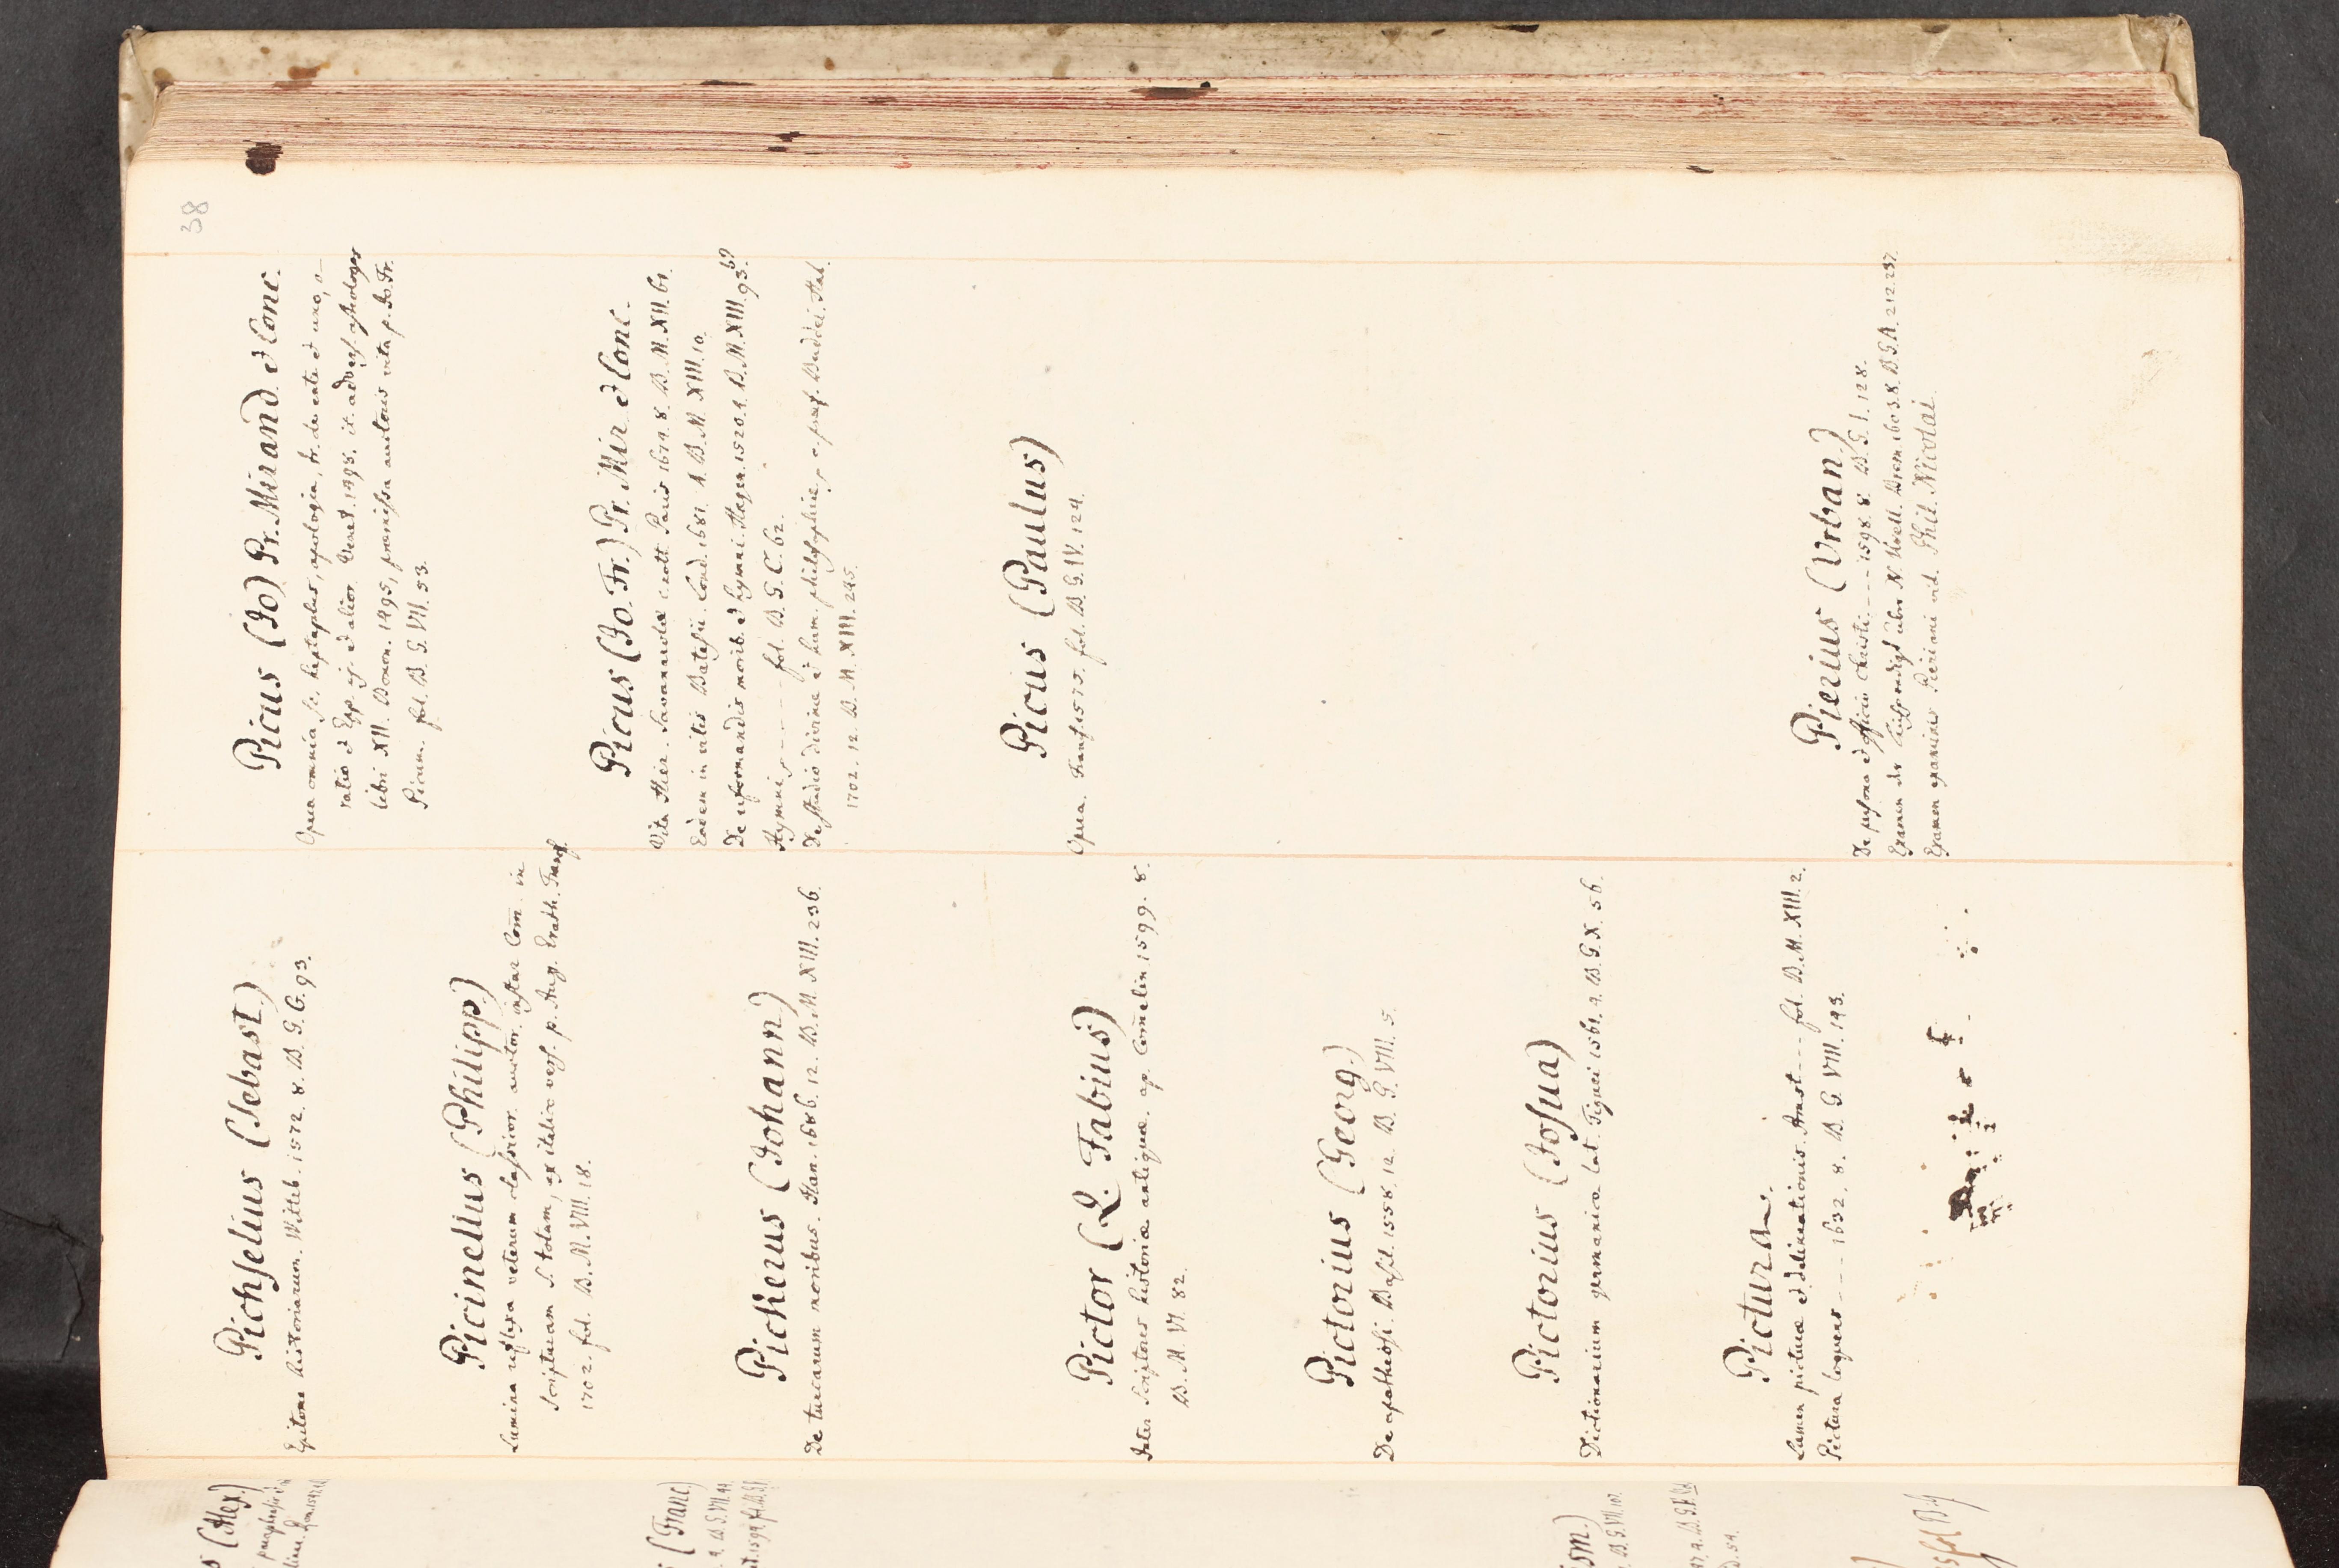 38
Pichselius (Sebast.)
Epitome historiarum. Witteb. 1572. 8. B. G. C. 93.
Picinellus (Philipp.)
Lumina reflexa veterum classicor. auctor. instar Com. in
Scripturam S. totam, ex italico vers. p. Aug. Erath. Francf.
1702. fol. B. M. VIII. 18.
Pickerus (Johann)
De turcarum moribus. Han. 1686. 12. B. M. XIII. 236.
Pictor (Q. Fabius)
Inter Scriptores historiæ antiquæ. ap. Comelin 1599. 8.
B. M. VI. 82.
Pictorius (Georg.)
De apotheosi. Basil. 1558. 12. B. G. VIII. 5.
Pictorius (Josua)
Dictionarium germanico lat. Tiguri 1561. 4. B. G. X. 56.
Pictura.
Lumen picturæ et delineationis. Amst. --- fol. B. M. XIII. 2.
Pictura loquens --- 1632. 8. B. G. VIII. 143.
Picus (Jo) Pr. Mirand. et Conc.
Opera omnia sc. heptaplus, apologia, tr. de ente et uno, o-
ratio et Epp. et alior. Venet. 1498. it. advers. astrologos
libri XII. Bonon. 1495, præmissa autoris vita p. Jo. Fr.
Picum. fol. B. G. VII. 53.
Picus (Jo. Fr.) Pr. Mir. et Conc.
Vita Hier. Savanarolæ Paris 1674. 8. B. M. XII. 61.
Eadem in vitis Batesii. Lond. 1681. 4. B. M. XIII. 10.
De reformandis morib. et hymni. Hagen. 1520. 4. B. M. XIII. 93.
Hymni --- fol. B. G. C. 62.
De studio divinæ et hum. philosophiæ, c. præf. Buddei. Hal.
1702. 12. B. M. XIII. 245.
Picus (Paulus)
Opera. Francf. 1575. fol. B. G. IV. 124.
Pierius (Urban.)
De persona et officio Christi. --- 1598. 8. B. G. I. 128.
Examen der über N. Brem. 1603. 8. B. G. A. 212. 237.
Examen examinis Pieriani vid. Phil. Nicolai.
(Alex.)
(Franc)